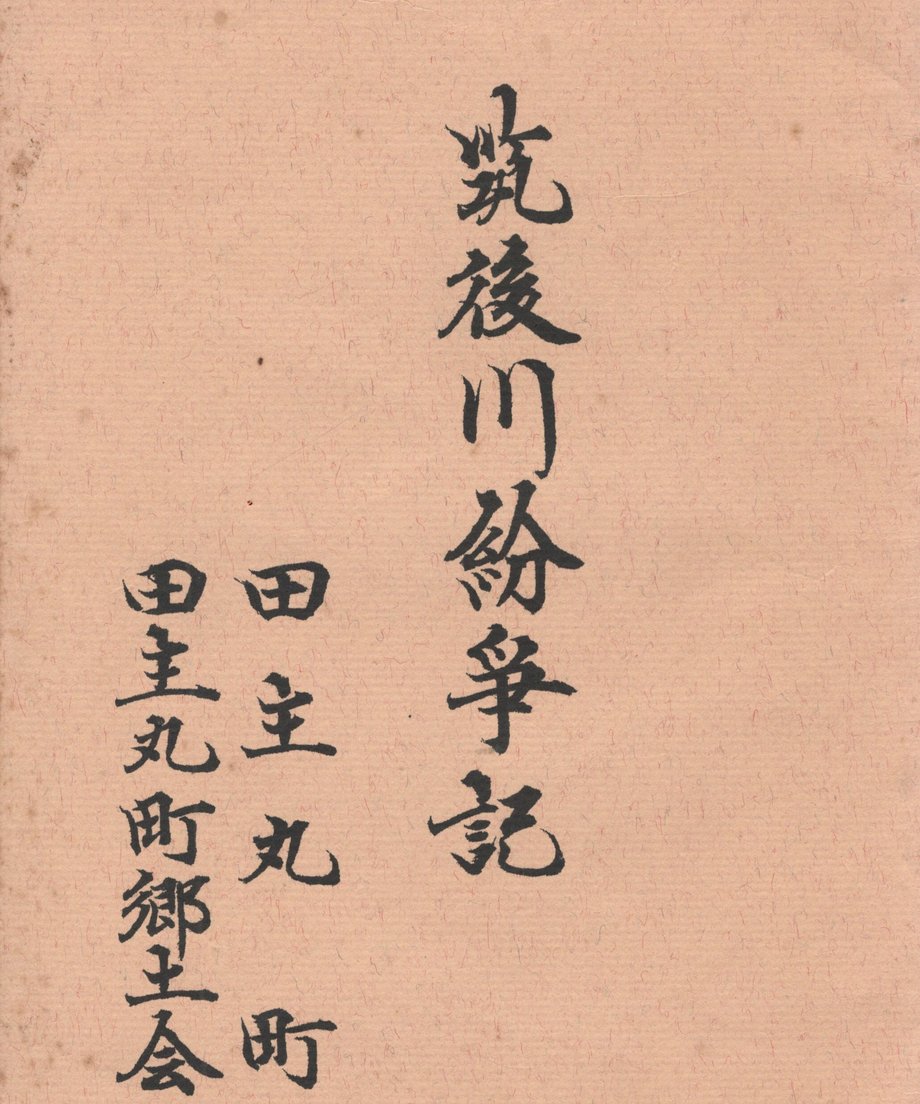 筑後川紛爭記
田主丸町
田主丸町郷土会